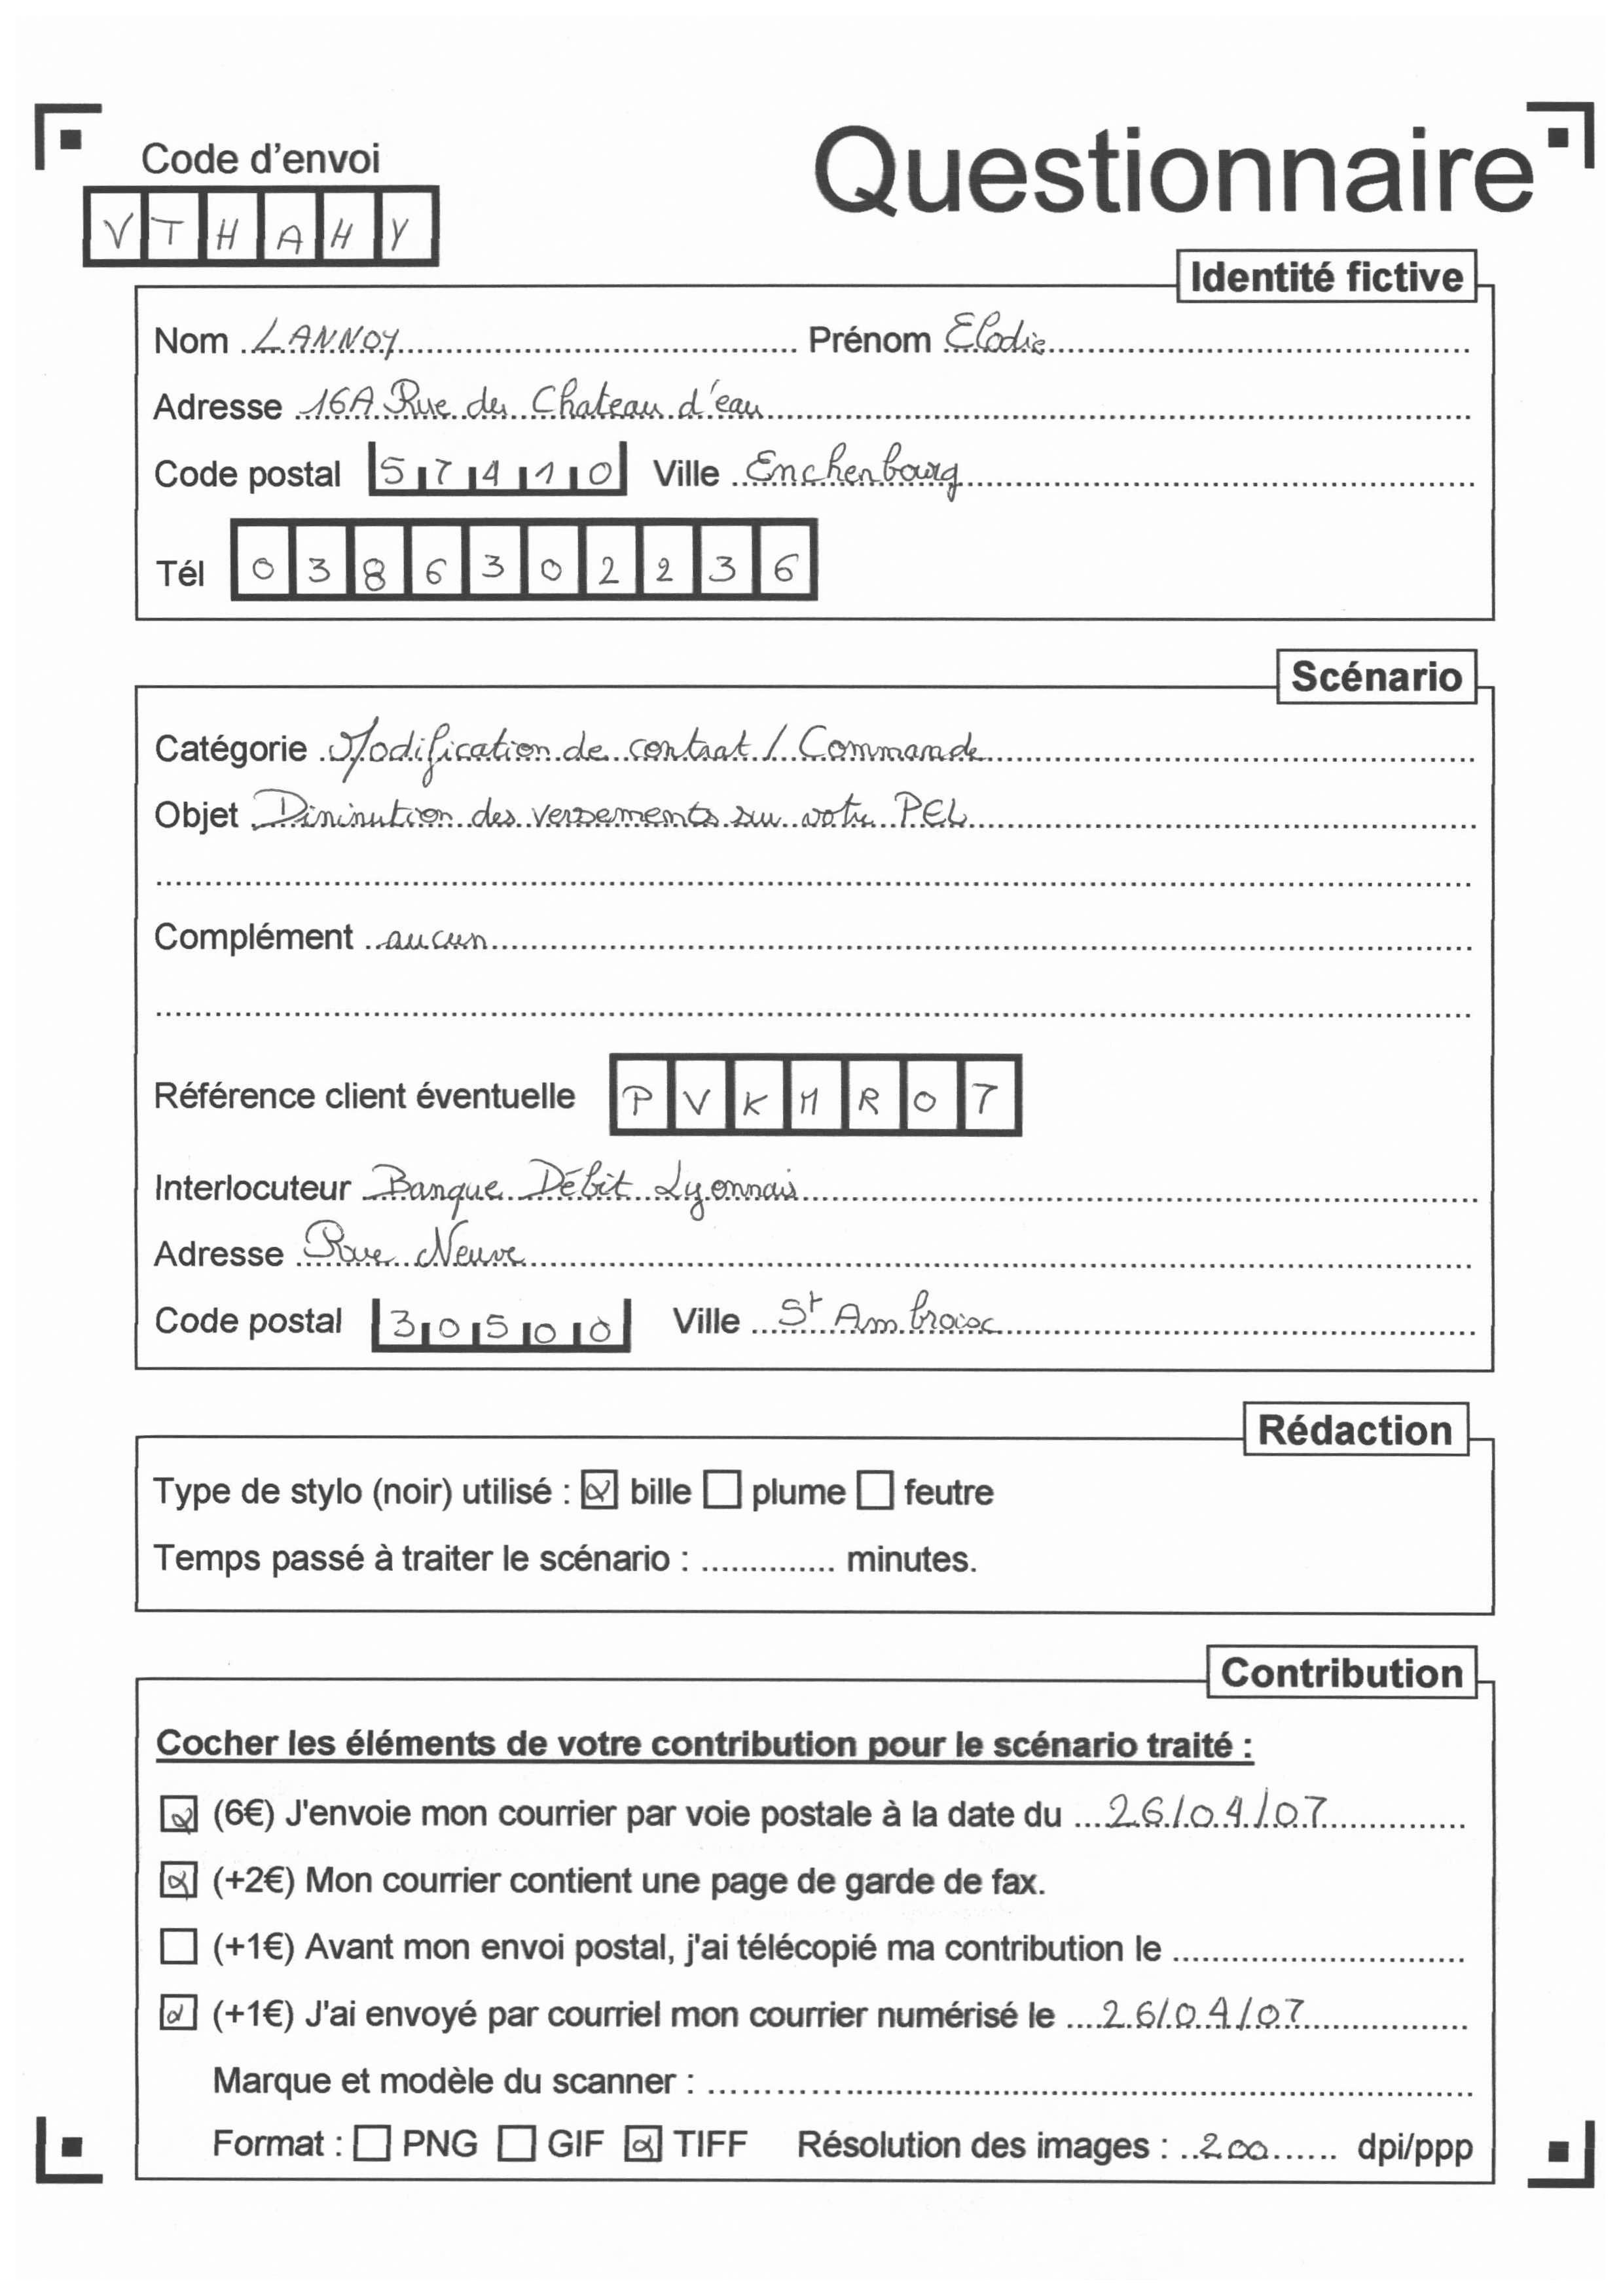 Code d'envoi
Questionnaire
VTHAHY
Identité fictive
Nom LANNOY Prénom Elodie
Adresse 16A Rue du Chateau d'eau
Code postal 57410 Ville Enchenbourg
Tél 0386302236
Scénario
Catégorie Modification de contrat / Commande
Objet Diminution des versements sur votre PEL
Complément aucun
Référence client éventuelle PVKMR07
Interlocuteur Banque Débit Lyonnais
Adresse Rue Neuve
Code postal 30500 Ville St Ambroise
Rédaction
Type de stylo (noir) utilisé : ☒ bille ☐ plume ☐ feutre
Temps passé à traiter le scénario : .............. minutes.
Contribution
Cocher les éléments de votre contribution pour le scénario traité :
☒ (6€) J'envoie mon courrier par voie postale à la date du 26/04/07
☒ (+2€) Mon courrier contient une page de garde de fax.
☐ (+1€) Avant mon envoi postal, j'ai télécopié ma contribution le ..............
☒ (+1€) J'ai envoyé par courriel mon courrier numérisé le 26/04/07
Marque et modèle du scanner : ..............
Format : ☐ PNG ☐ GIF ☒ TIFF Résolution des images : 200 dpi/ppp